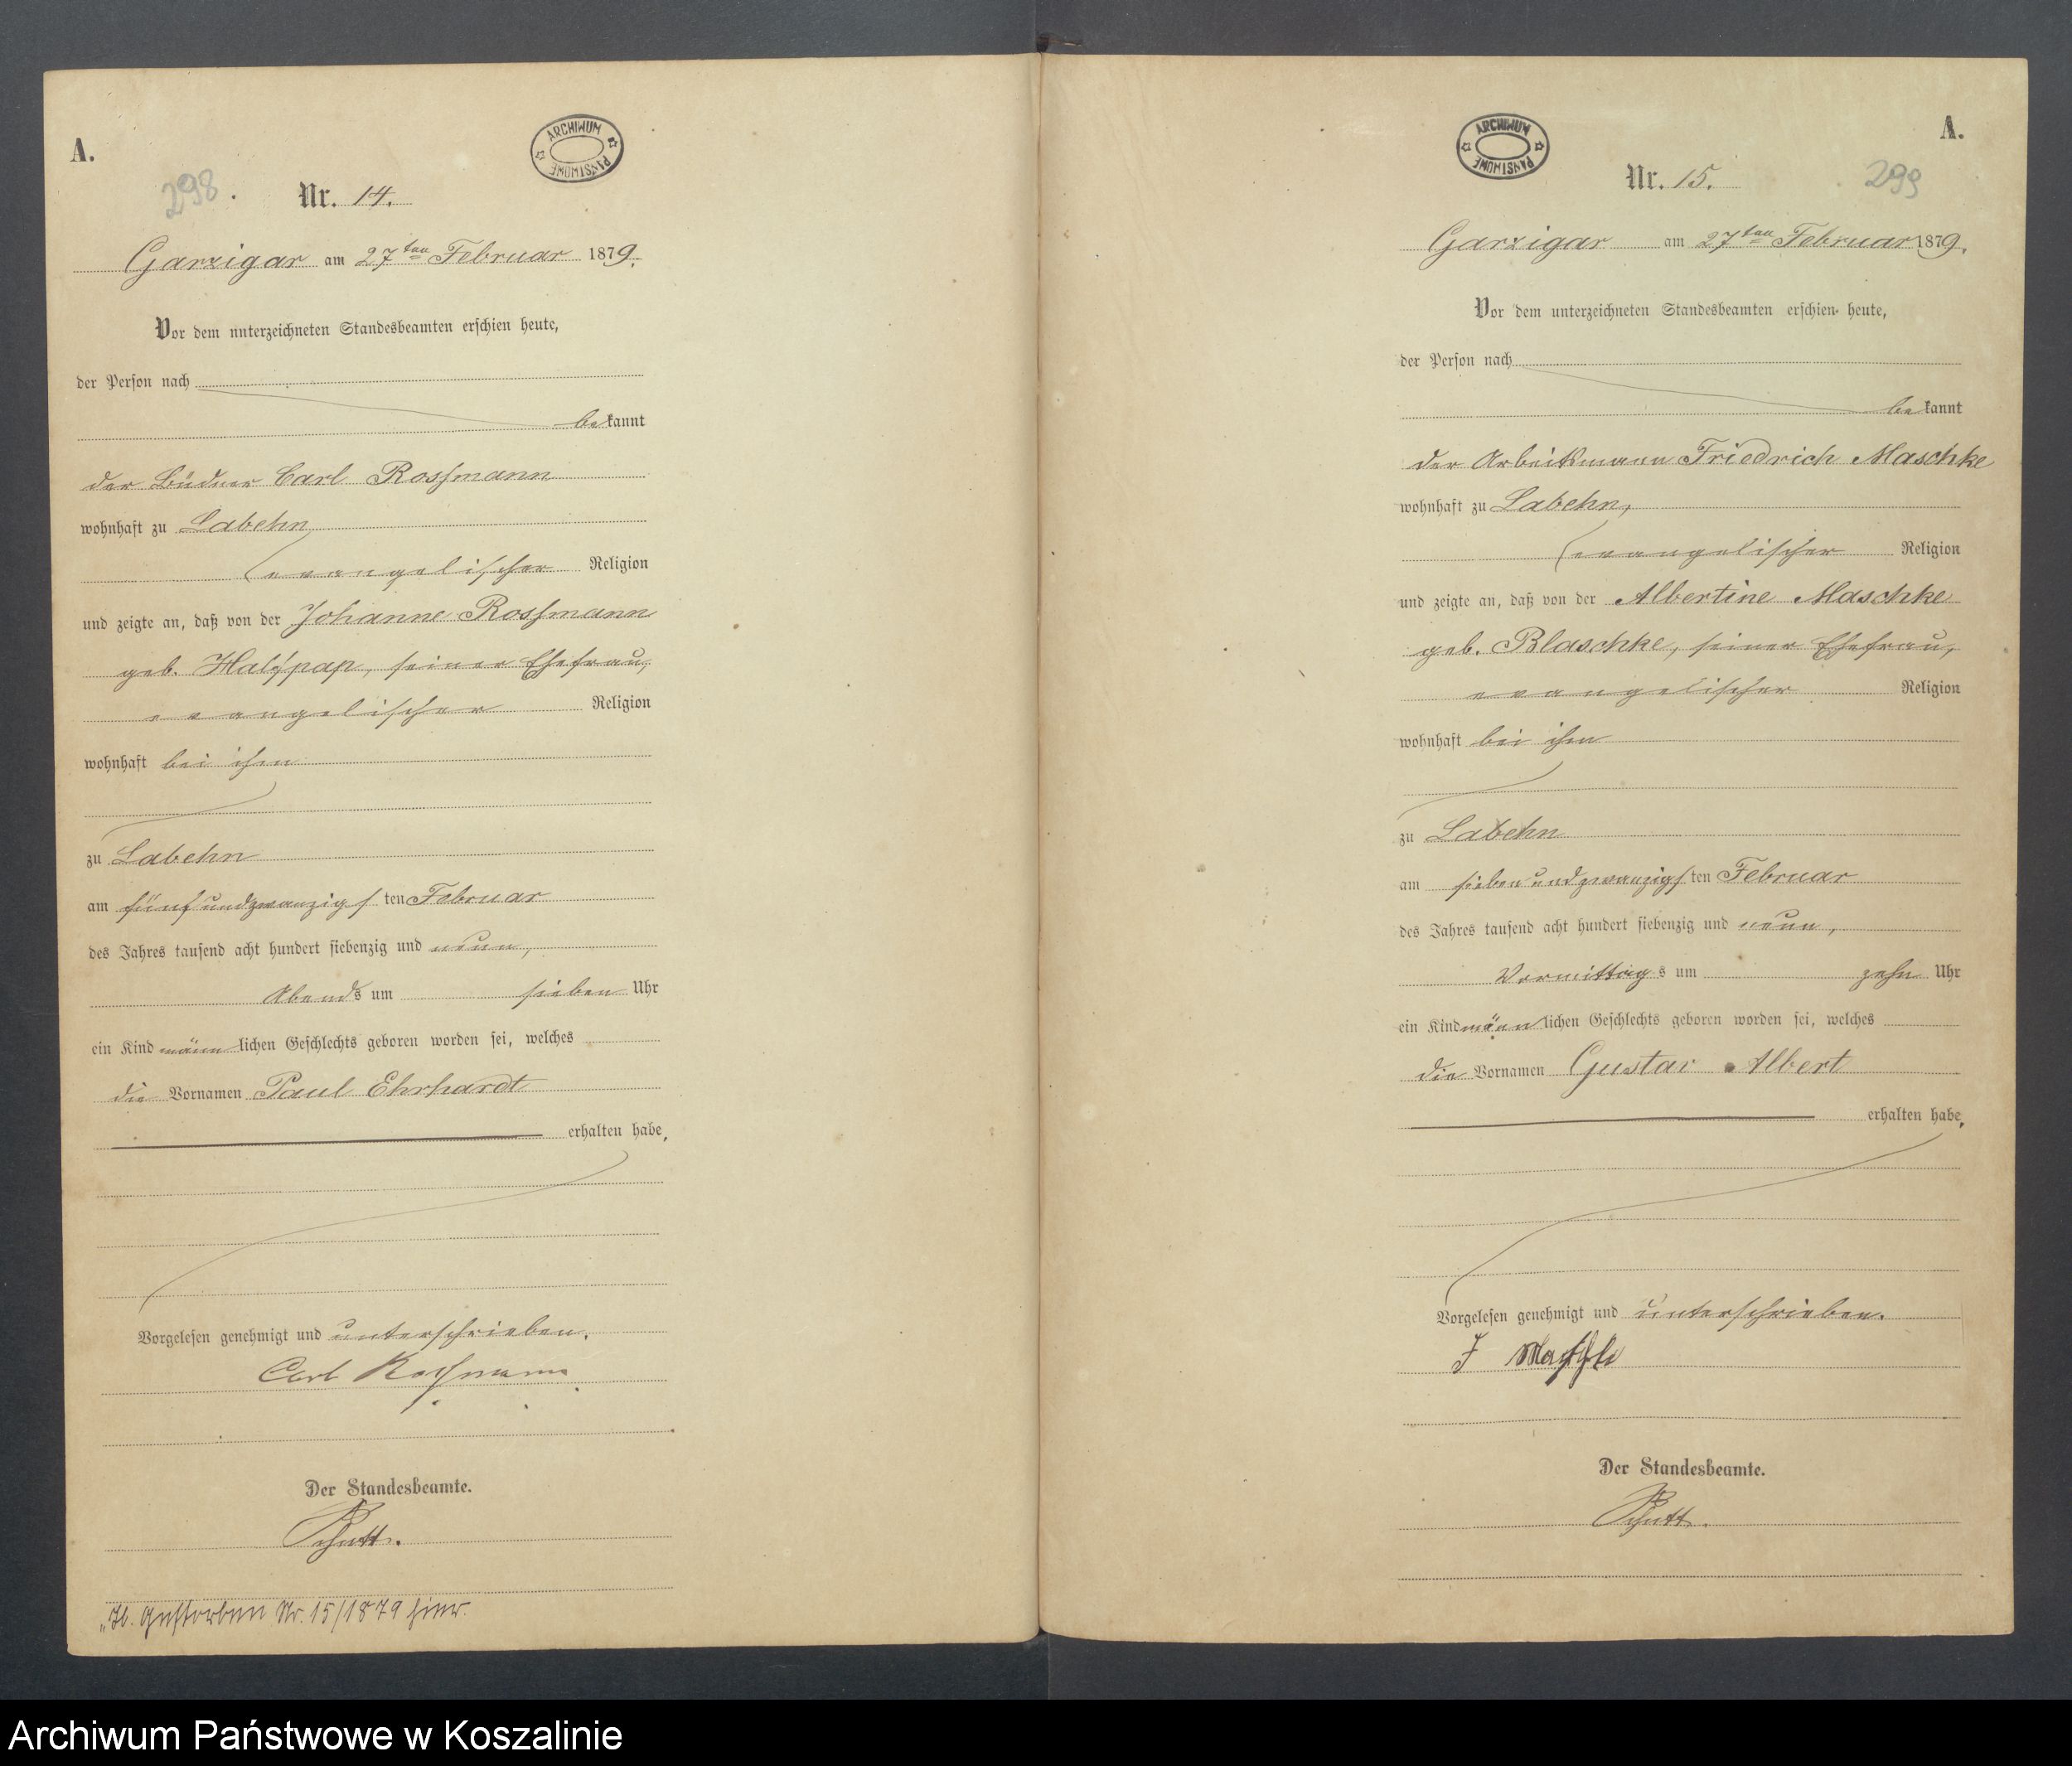 A.
298.
ARCHIWUM PAŃSTWOWE
Nr. 14.
Garzigar am 27ten Februar 1879.
Vor dem unterzeichneten Standesbeamten erschien heute,
der Person nach
bekannt
der Büdner Carl Rossmann
wohnhaft zu Labehn,
evangelischer Religion
und zeigte an, daß von der Johanne Rossmann
geb. , seiner Ehefrau,
evangelischer Religion
wohnhaft bei ihm
zu Labehn
am fünfundzwanzigsten Februar
des Jahres tausend acht hundert siebenzig und neun,
Abends um sieben Uhr
ein Kind männlichen Geschlechts geboren worden sei, welches
die Vornamen Paul Ehrhardt
erhalten habe,
Vorgelesen genehmigt und unterschrieben.
Carl Rossmann
Der Standesbeamte.
Schutt.
gestorben Nr. 15/1879 hier.
A.
299
ARCHIWUM PAŃSTWOWE
Nr. 15.
Garzigar am 27ten Februar 1879.
Vor dem unterzeichneten Standesbeamten erschien heute,
der Person nach
bekannt
der Arbeitsmann Friedrich Maschke
wohnhaft zu Labehn,
evangelischer Religion
und zeigte an, daß von der Albertine Maschke
geb. Blaschke, seiner Ehefrau,
evangelischer Religion
wohnhaft bei ihm
zu Labehn
am siebenundzwanzigsten Februar
des Jahres tausend acht hundert siebenzig und neun,
Vormittags um zehn Uhr
ein Kind männlichen Geschlechts geboren worden sei, welches
die Vornamen Gustav Albert
erhalten habe,
Vorgelesen genehmigt und unterschrieben.
F Maschke
Der Standesbeamte.
Schutt.
Archiwum Państwowe w Koszalinie